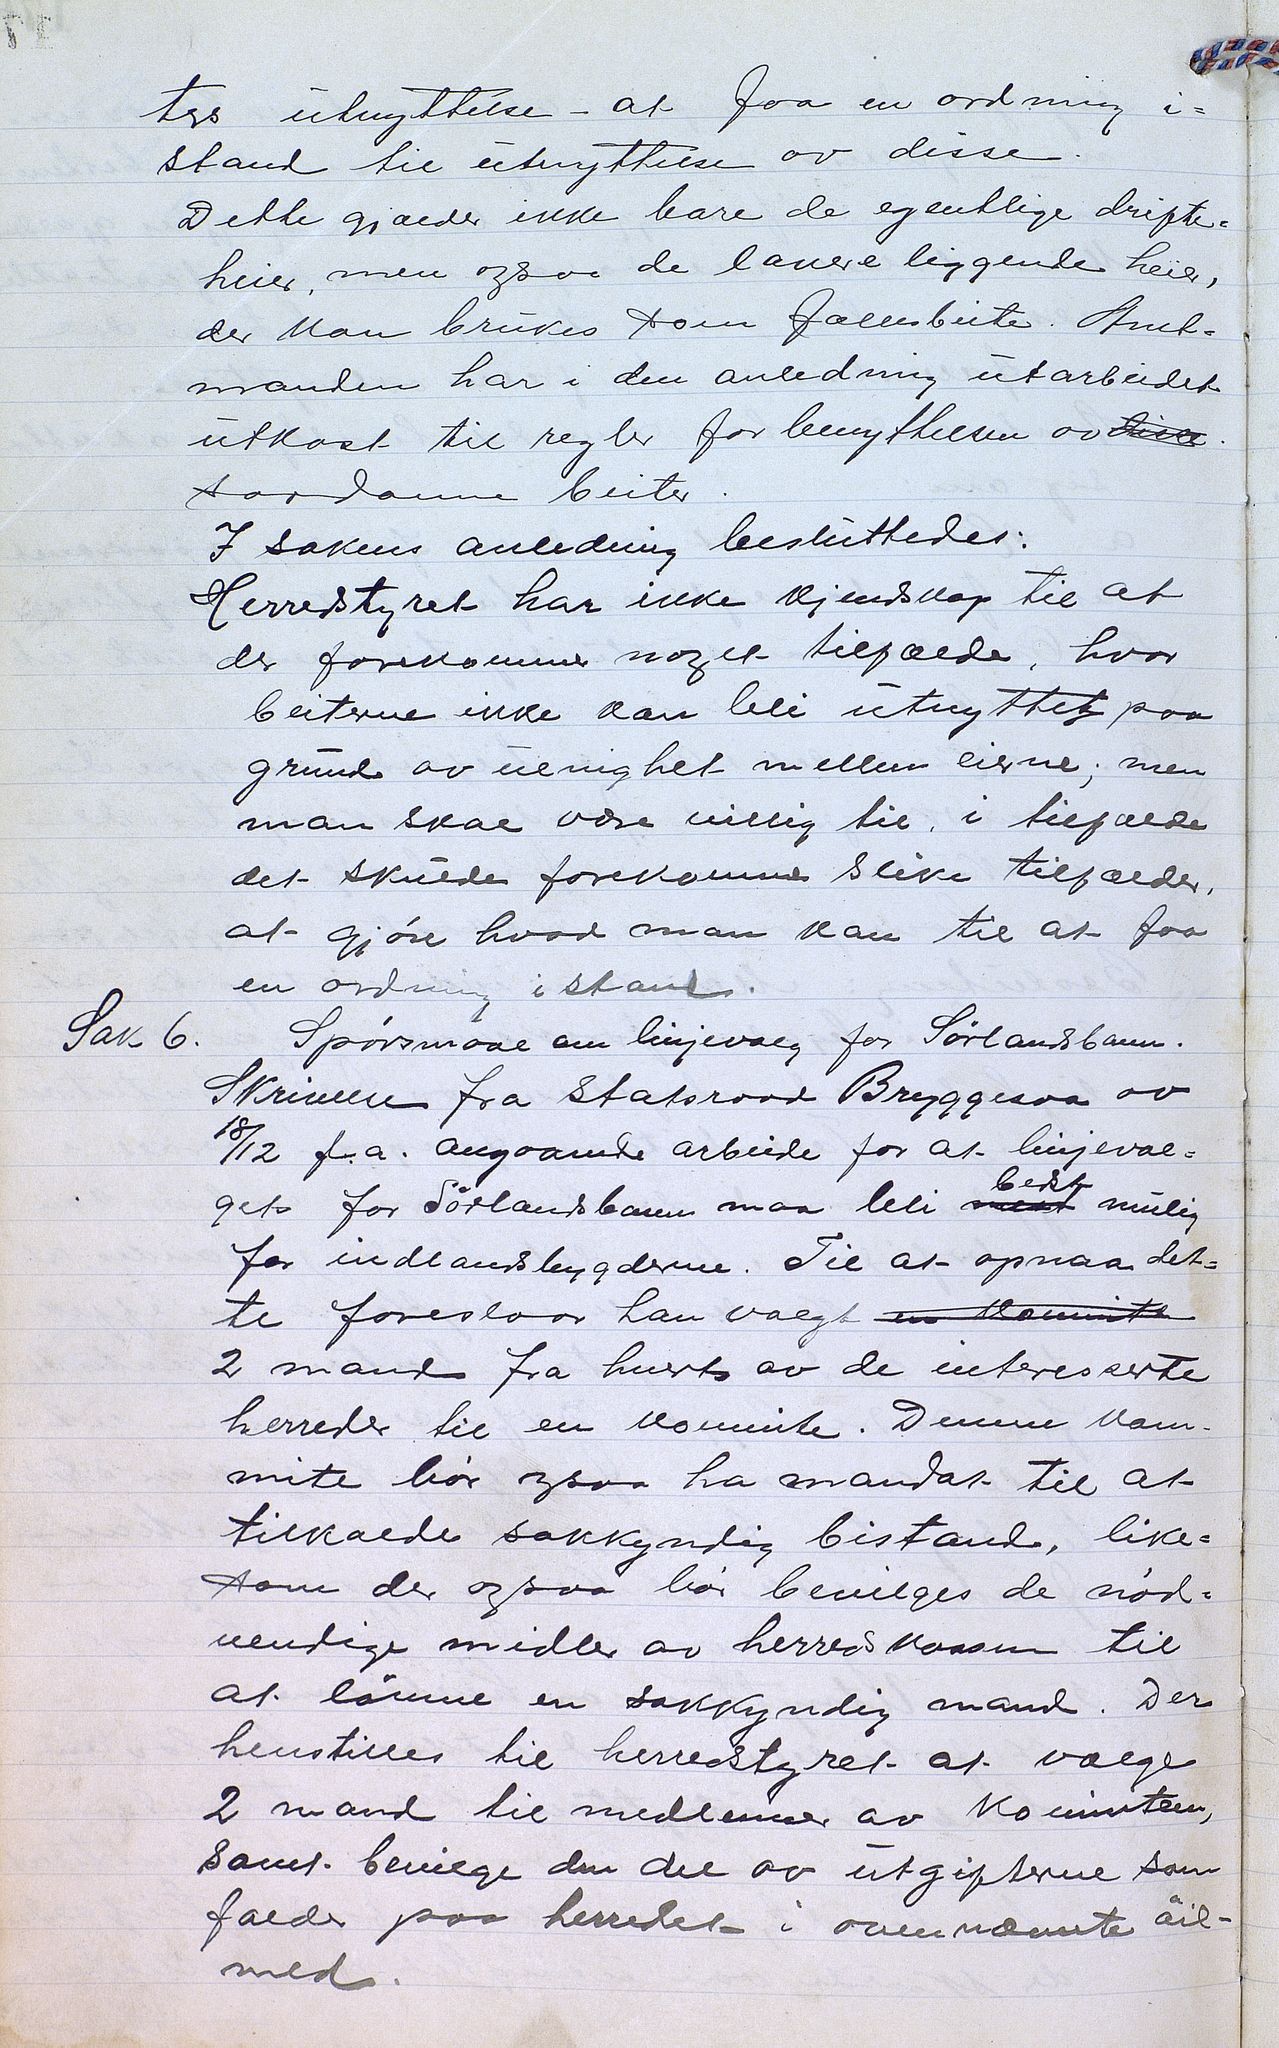 tes utnyttelse - at faa en ordning i=
stand til utnyttelse av disse.
Dette gjælder ikke bare de egentlige drifte=
heier, men ogsaa de lavere liggende heier,
der kan brukes som fællesbeite. Amt-
manden har i den anledning utarbeidet
utkast til regler for benyttelsen av disse.
saadanne beiter.
I sakens anledning besluttedes:
Herredstyret har ikke kjendskap til at
der forekommer noget tilfælde, hvor
beiterne ikke kan bli utnyttet paa
grund av uenighet mellem eierne; men
man skal være villig til, i tilfælde
det skulde forekomme slike tilfælder,
at gjøre hvad man kan til at faa
en ordning istand.
Sak 6. Spörsmaal om linjevalg for Sörlandsbanen.
Skrivelse fra Statsraad Bryggesaa av
18/12 f.a. angaaende arbeide for at linjeval=
get for Sörlandsbanen maa bli mest bedst mulig
for indlandsbygderne. Til at opnaa det=
te foreslaar han valgt en komite
2 mand fra hvert av de interesserte
herreder til en komite. Denne kom-
mite bör ogsaa ha mandat til at
tilkalde sakkyndig bistand, like=
som der ogsaa bör bevilges de nöd=
vendige midler av herredskassen til
at lönne en sakkyndig mand. Der
henstilles til herredstyret at vælge
2 mand til medlemmer av komiteen,
samt bevilge den del av utgifterne som
falder paa herredet i ovennævnte öie-
med.